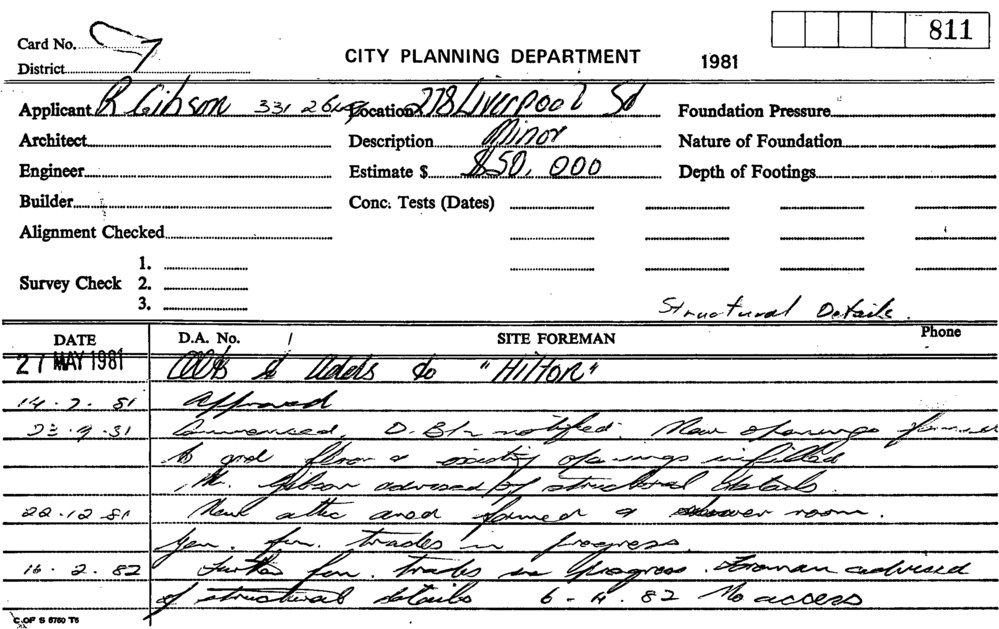 811
Card No. 7
CITY PLANNING DEPARTMENT 1981
District
Applicant R Gibson 331 264 Location 278 Liverpool St Foundation Pressure
Architect Description Minor Nature of Foundation
Engineer Estimate $ $50,000 Depth of Footings
Builder Conc. Tests (Dates)
Alignment Checked
1.
Survey Check 2.
3.
Structural Details.
DATE D.A. No. / SITE FOREMAN Phone
27 MAY 1981 Alts & Adds to "HilTon"
14.7.81 Approved
23.9.81 Commenced. D. notified. New openings formed
to grd floor & existing openings infilled
Mr. Gibson advised of structural details.
22.12.81 New attic area formed & shower room.
Gen. fin. trades in progress.
16.2.82 Further fin. trades in progress. Foreman advised
of structural details 6-4.82 No access
C.OF S 6760 T6